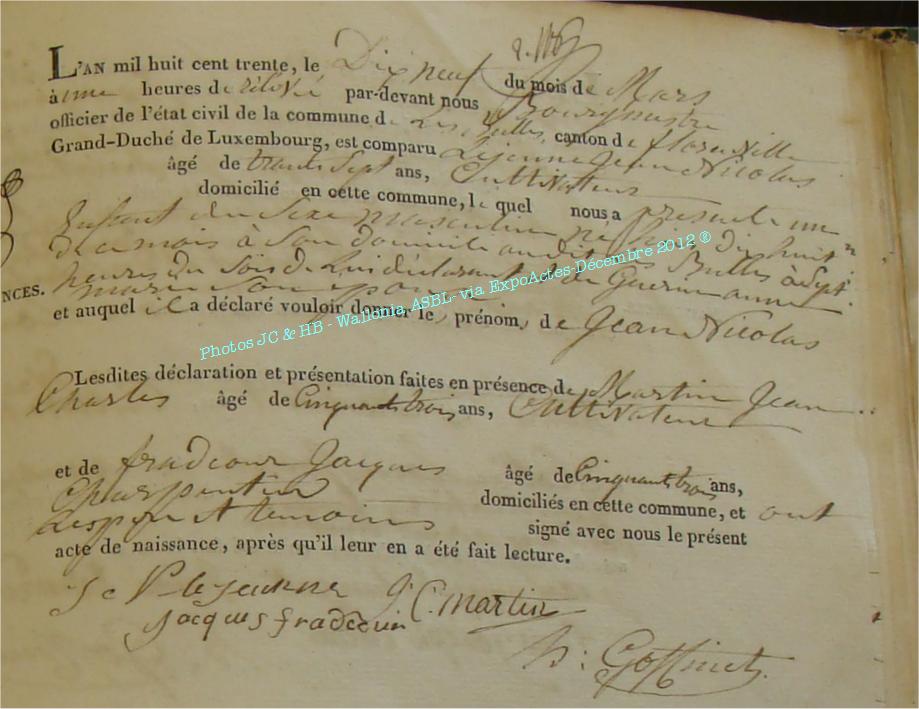 L'AN mil huit cent trente, le Dix neuf du mois de Mars
à une heures de relevé par-devant nous Bourgmestre
officier de l'état civil de la commune de Les Bulles, canton de florenville
Grand-Duché de Luxembourg, est comparu Lejeune Jean Nicolas
âgé de trente Sept ans, Cultivateur
domicilié en cette commune, le quel nous a presenté un
Enfant du Sexe masculin né hier dix huit
de ce mois à Son domicile au dit Les Bulles à Sept
heures du Soir de lui déclarant et de Guerin anne
NCES. marie Son epouse
et auquel il a déclaré vouloir donner les prénoms de Jean Nicolas
Photos JC & HB - Wallonia ASBL- via ExpoActes-Décembre 2012 ®
Lesdites déclaration et présentation faites en présence de Martin Jean
Charles âgé de Cinquante trois ans, Cultivateur
et de fradcour Jacques âgé de Cinquante trois ans,
Charpentier domiciliés en cette commune, et ont
Les pere et temoins signé avec nous le présent
acte de naissance, après qu'il leur en a été fait lecture.
J N lejeunne J C. martin
jacques fradcour
h: Goffinet